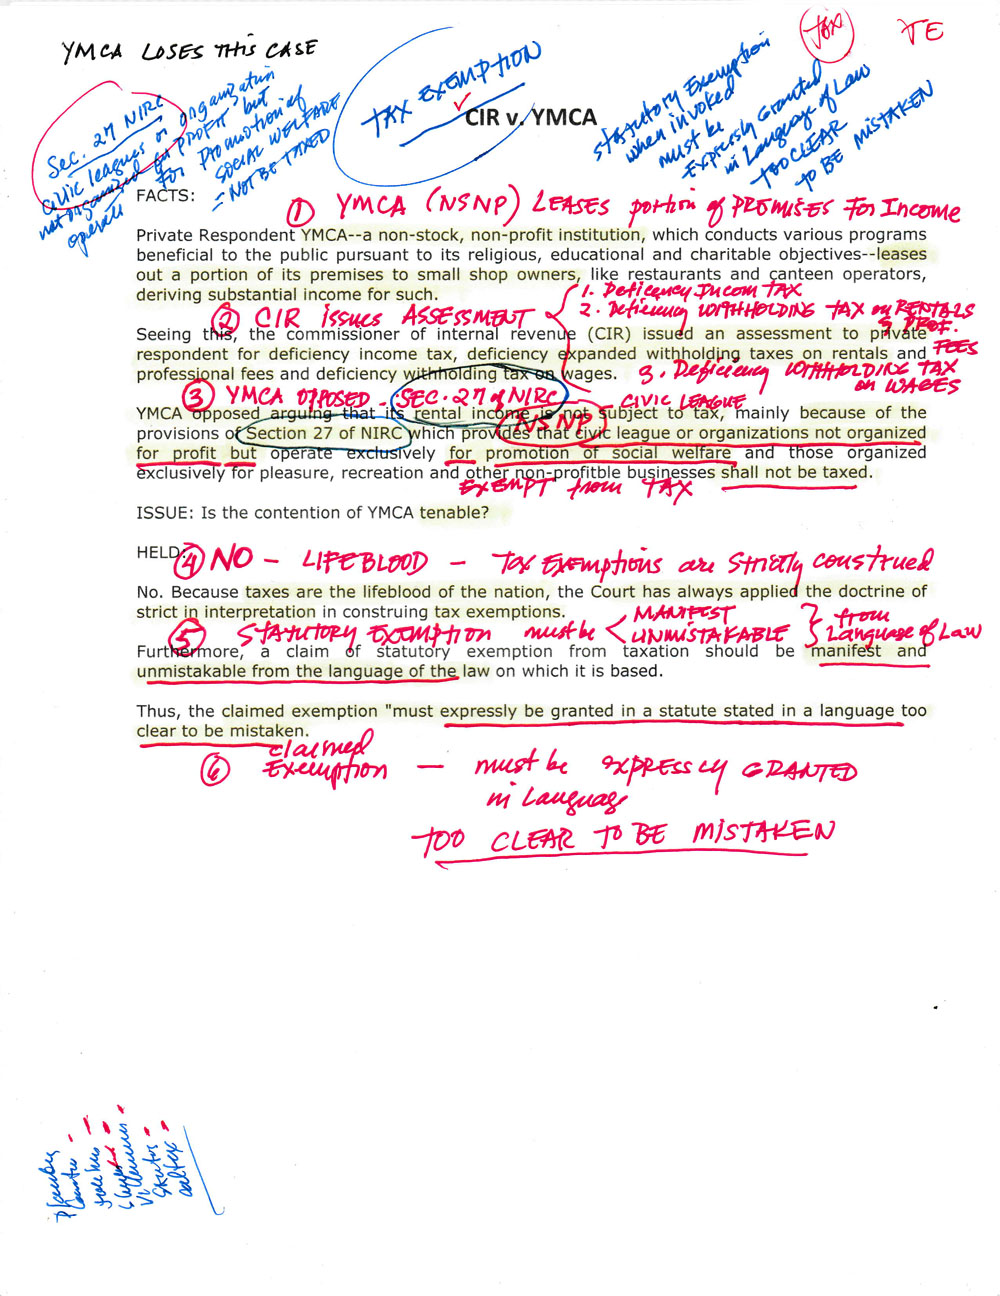 YMCA LOSES THIS CASE
tax
TE
Sec. 27 NIRC
civic leagues or organization
not organized for PROFIT but
operate for Promotion of
SOCIAL WELFARE
= NOT BE TAXED
TAX EXEMPTION
CIR v. YMCA
statutory Exemption
when invoked
must be
Expressly Granted
in Language of Law
TOO CLEAR
TO BE MISTAKEN
FACTS:
① YMCA (NSNP) LEASES portion of PROMISES For Income
Private Respondent YMCA--a non-stock, non-profit institution, which conducts various programs
beneficial to the public pursuant to its religious, educational and charitable objectives--leases
out a portion of its premises to small shop owners, like restaurants and canteen operators,
deriving substantial income for such.
② CIR issues ASSESSMENT
1. Deficency Incom TAX
2. Deficiency WITHHOLDING TAX on RENTALS
& PROF.
FEES
Seeing this, the commissioner of internal revenue (CIR) issued an assessment to private
respondent for deficiency income tax, deficiency expanded withholding taxes on rentals and
professional fees and deficiency withholding tax on wages.
3. Deficiency WITHHOLDING TAX
on WAGES
③ YMCA OPPOSED - SEC. 27 of NIRC - CIVIC LEAGUE
NSNP
YMCA opposed arguing that its rental income is not subject to tax, mainly because of the
provisions of Section 27 of NIRC which provides that civic league or organizations not organized
for profit but operate exclusively for promotion of social welfare and those organized
exclusively for pleasure, recreation and other non-profitble businesses shall not be taxed.
EXEMPT from TAX
ISSUE: Is the contention of YMCA tenable?
HELD:
④ NO - LIFEBLOOD - Tax Exemptions are strictly construed
No. Because taxes are the lifeblood of the nation, the Court has always applied the doctrine of
strict in interpretation in construing tax exemptions.
⑤ STATUTORY EXEMPTION must be < MANIFEST
UNMISTAKABLE } from
Language of Law
Furthermore, a claim of statutory exemption from taxation should be manifest and
unmistakable from the language of the law on which it is based.
Thus, the claimed exemption "must expressly be granted in a statute stated in a language too
clear to be mistaken.
⑥ claimed
Exemption — must be EXPRESSLY GRANTED
in Language
TOO CLEAR TO BE MISTAKEN